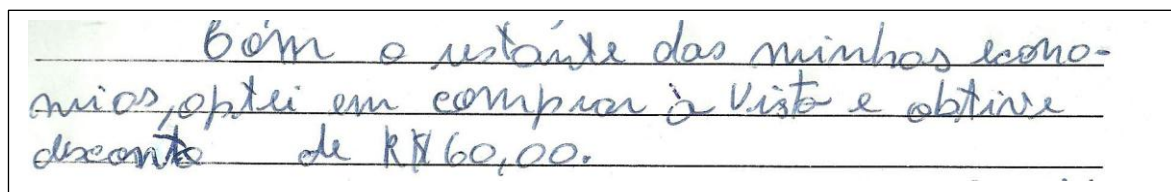 Com o restante das minhas econo-
mias, optei em comprar à vista e obtive
desconto de R$ 60,00.